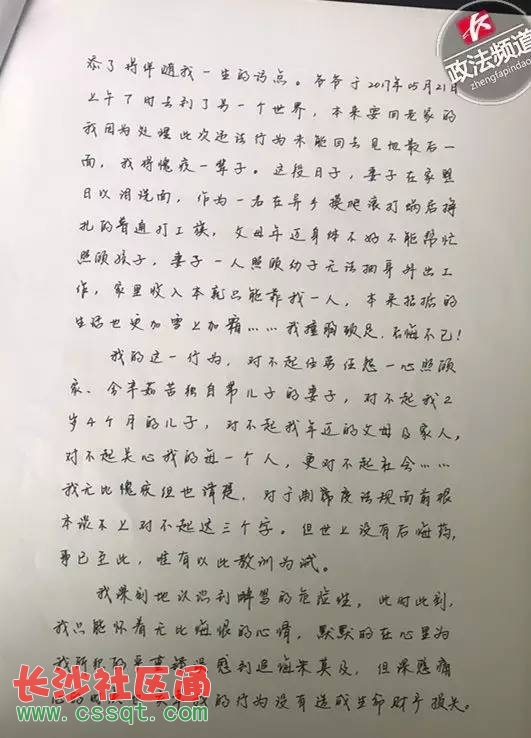 政法频道
zhengfapindao
添了将伴随我一生的污点。爷爷于2017年05月21日
上午7时去到了另一个世界,本来要回老家的
我因为处理此次违法行为未能回去见他最后一
面,我将愧疚一辈子。这段日子,妻子在家整
日以泪洗面,作为一名在异乡摸爬滚打蜗居挣
扎的普通打工族,父母年迈身体不好不能帮忙
照顾孩子,妻子一人照顾幼子无法抽身外出工
作,家里收入本就只能靠我一人,本来拮据的
生活也更加雪上加霜……我捶胸顿足,后悔不已!
我的这一行为,对不起任劳任怨一心照顾
家、含辛茹苦独自带儿子的妻子,对不起我2
岁4个月的儿子,对不起我年迈的父母及家人,
对不起关心我的每一个人,更对不起社会……
我无比愧疚但也清楚,对于制度法规面前根
本谈不上对不起这三个字。但世上没有后悔药,
事已至此,唯有以此教训为诫。
我深刻地认识到醉驾的危险性,此时此刻,
我只能怀着无比悔恨的心情,默默的在心里为
我所犯的严重错误感到追悔莫及,但深感痛
我的行为没有造成生命财产损失。
长沙社区通
www.cssqt.com